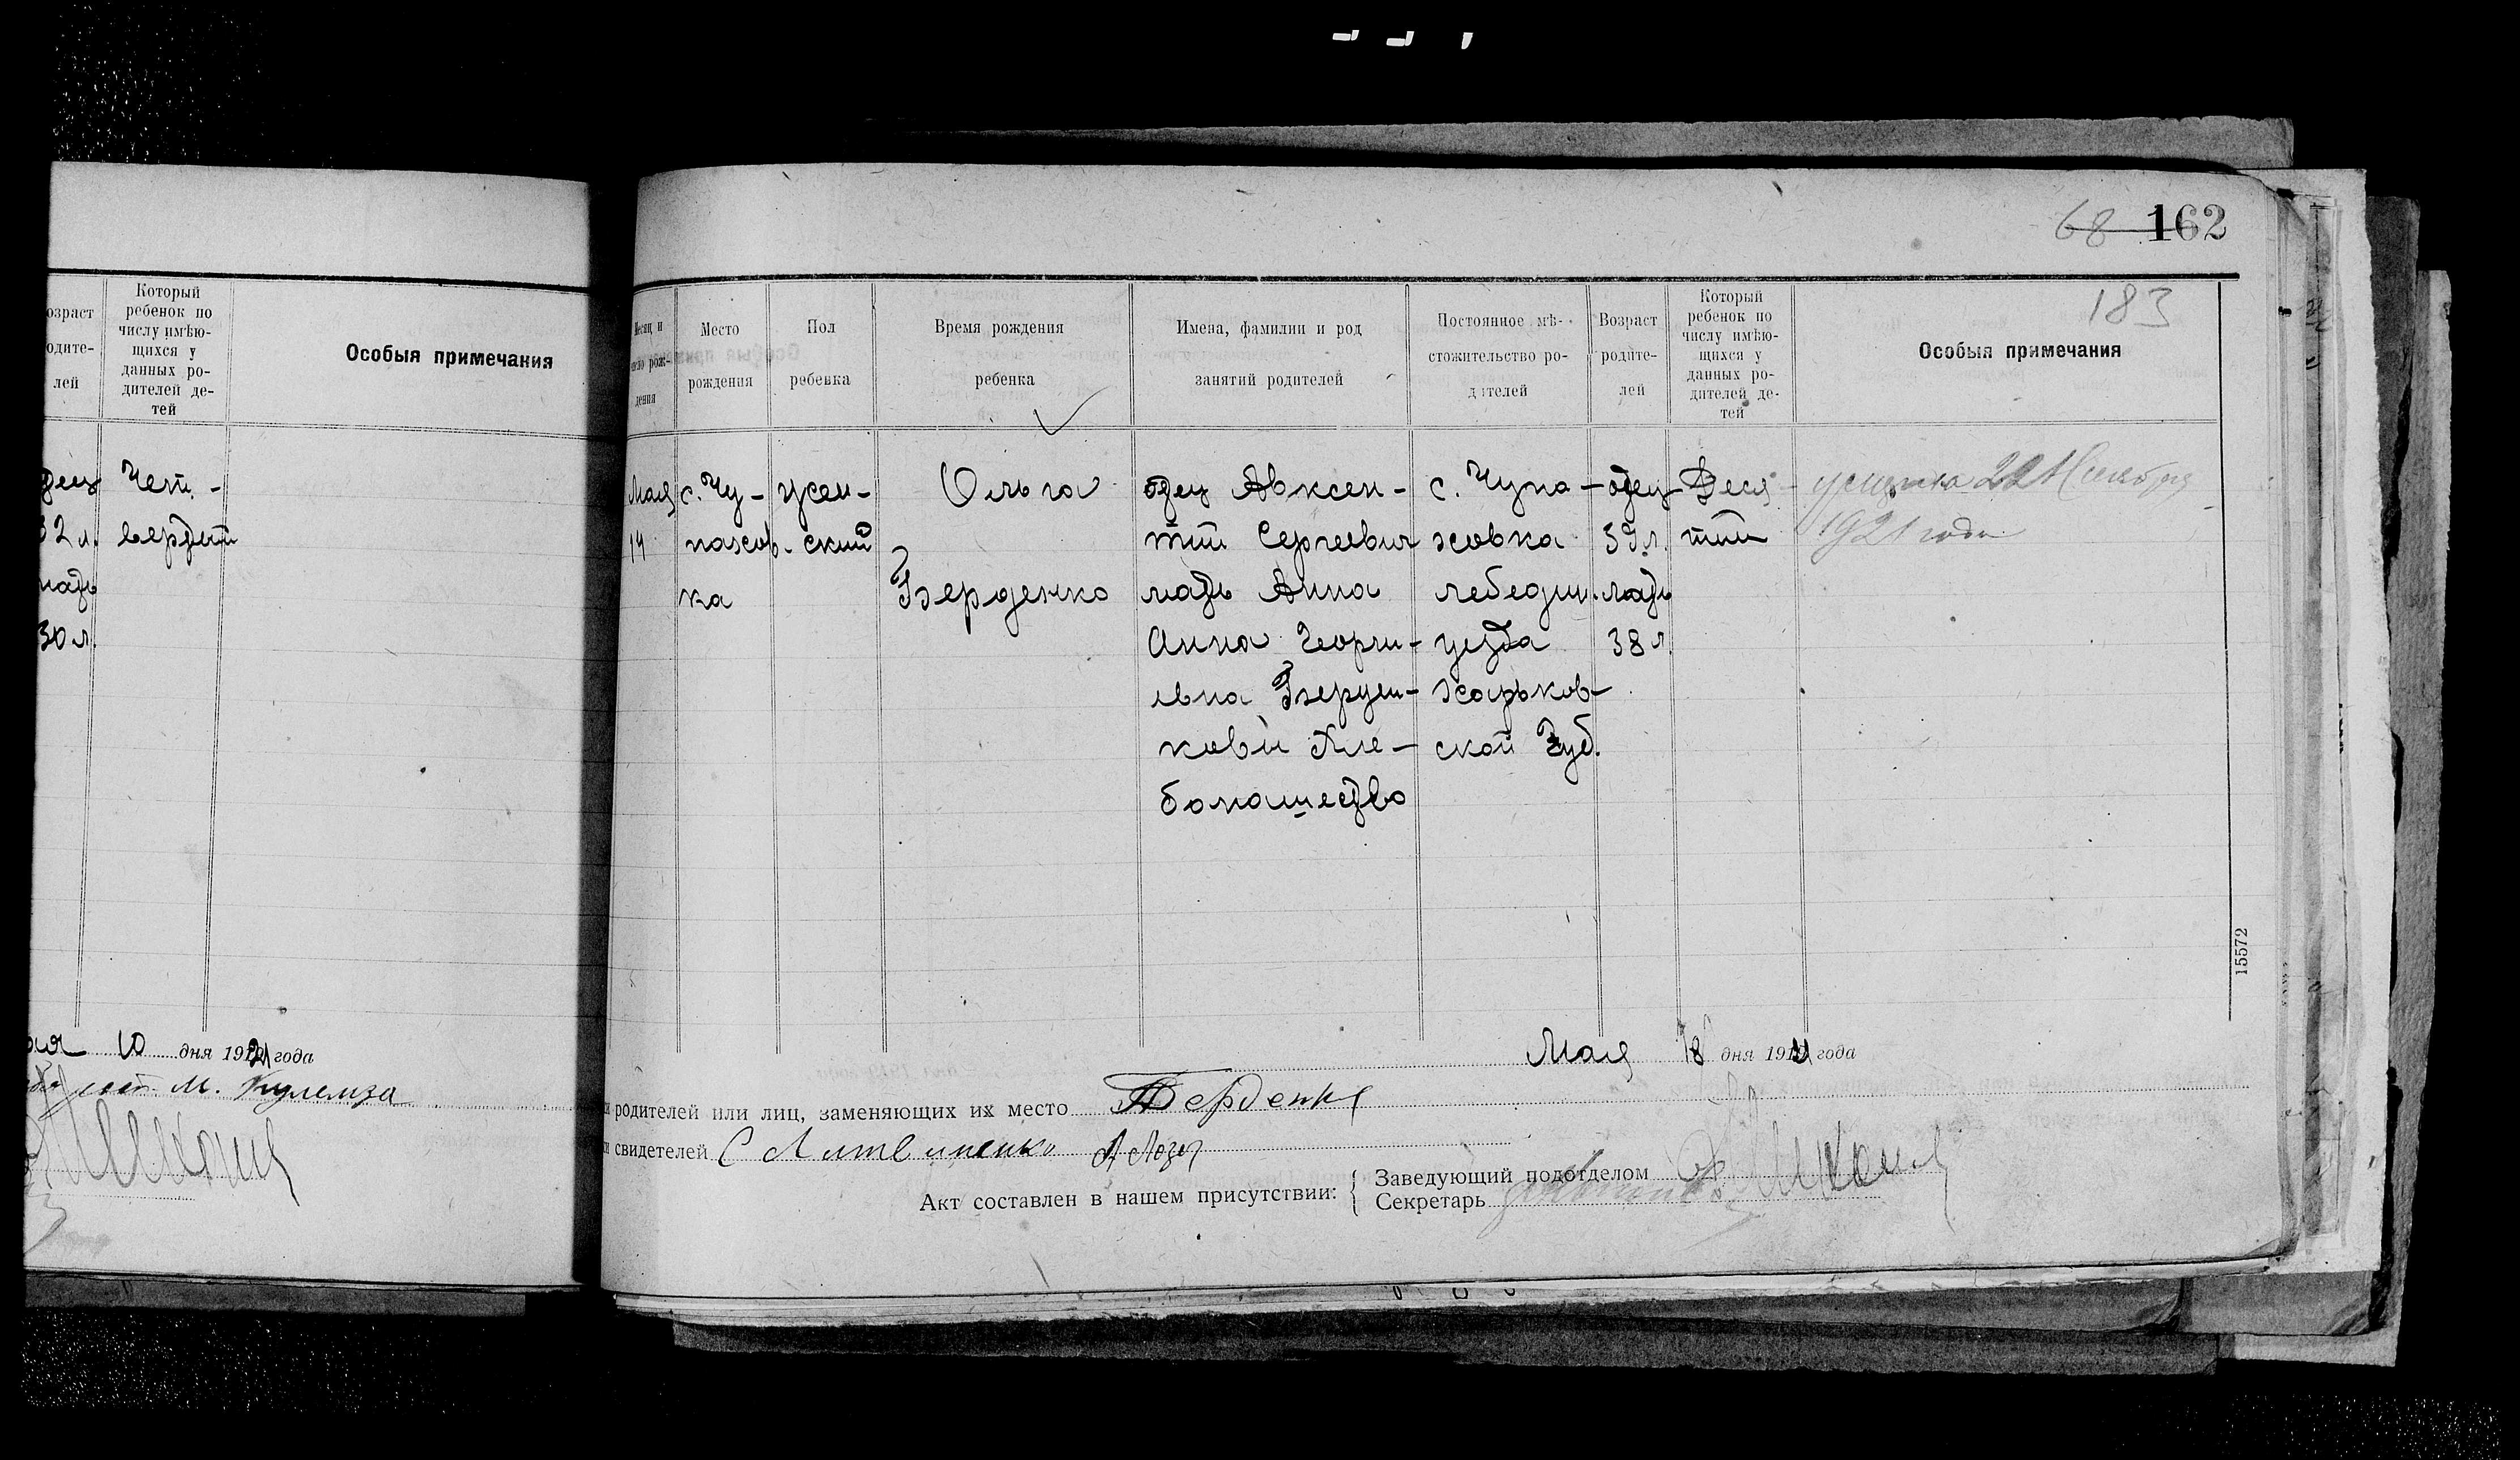 68 162
183
озраст
одите-
лей
Который
ребенок по
числу имѣю-
щихся у
данных ро-
дителей де-
тей
Особыя примечания
32 л.
30 л.
Чет-
вертый
10 дня 1921 года
М. Кулемза
Месяц и
число рож-
дения
Место
рождения
Пол
ребенка
Время рождения
ребенка
Имена, фамилии и род
занятий родителей
Постоянное мѣ-
стожительство ро-
дителей
Возраст
родите-
лей
Который
ребенок по
числу имѣю-
щихся у
данных ро-
дителей де-
тей
Особыя примечания
Мая
14
с. Чу-
пахов-
ка
жен-
ский
Ольга
Берденко
отец Авксен-
тий Сергеевич
мать Анна
Анна Георги-
евна Берден-
ковы Хле-
бопашество
с. Чупа-
ховка
лебедин.
уезда
харьков-
ской Губ.
отец
39 л.
мать
38 л.
Деся-
тый
22
1921 года
15572
Мая 18 дня 1921 года
родителей или лиц, заменяющих их место Берденко
свидетелей С Литвиненко
Акт составлен в нашем присутствии:
Заведующий подотделом
Секретарь